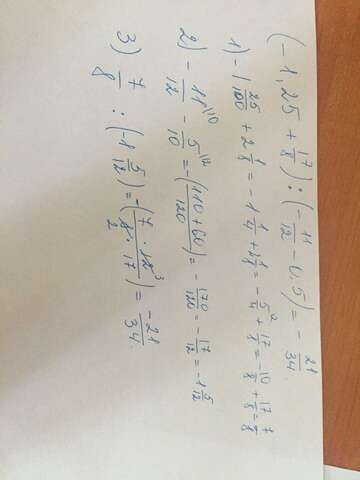 (-1,25 + 17/8) : (-11/12 - 0,5) = -21/34
1) -1 25/100 + 2 1/8 = -1 1/4 + 2 1/8 = -5/4 ² + 17/8 = -10/8 + 17/8 = 7/8
2) -11/12 ¹⁰ - 5/10 ¹² = -(110+60/120) = -170/120 = -17/12 = -1 5/12
3) 7/8 : (-1 5/12) = -(7 · 12 ³/8 ₂ · 17) = -21/34